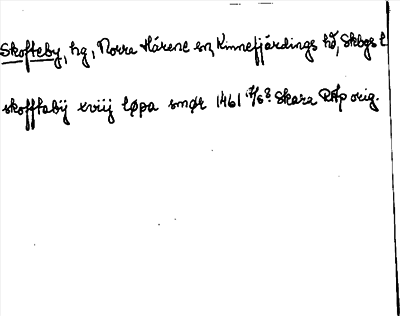 Skofteby, hg, Norra Härene sn, Kinnefjärdings hd, Skbgs l
skofftabij xviij løpa smør 1461 17/6? Skara RAp orig.